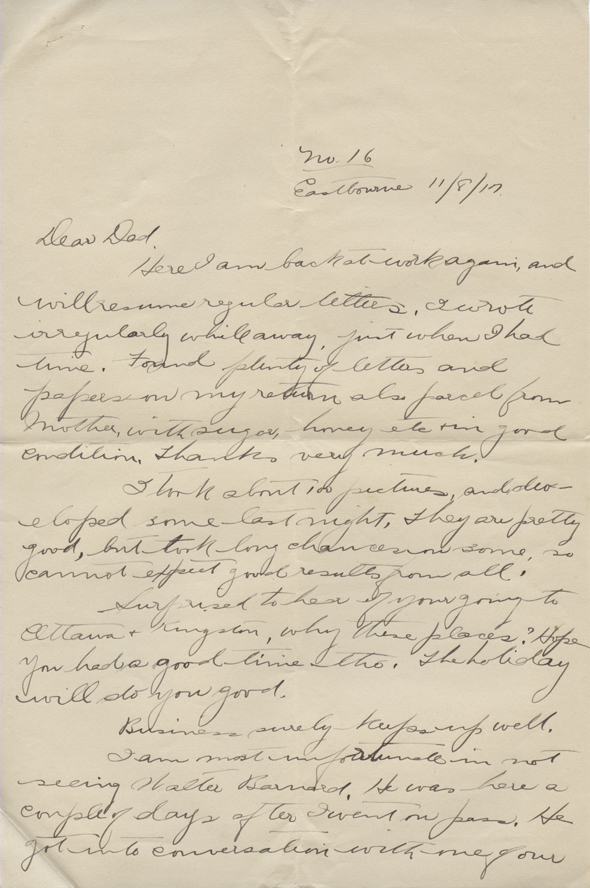 No. 16
Eastbourne 11/8/17
Dear Dad,
Here I am back at work again, and
will resume regular letters, I wrote
irregularly while away, just when I had
time. Found plenty of letters and
papers on my return also parcel from
Mother, with sugar, honey etc + in good
condition. Thanks very much.
I took about 100 pictures, and dev-
eloped some last night. They are pretty
good, but took long chances on some, so
cannot expect good results from all.
Surprised to hear of your going to
Ottawa + Kingston, why these places? Hope
you had a good time tho. The holiday
will do you good.
Business surely keeps up well.
I am most unfortunate in not
seeing Walter Barnard. He was here a
couple of days after I went on pass. He
got into conversation with one of our